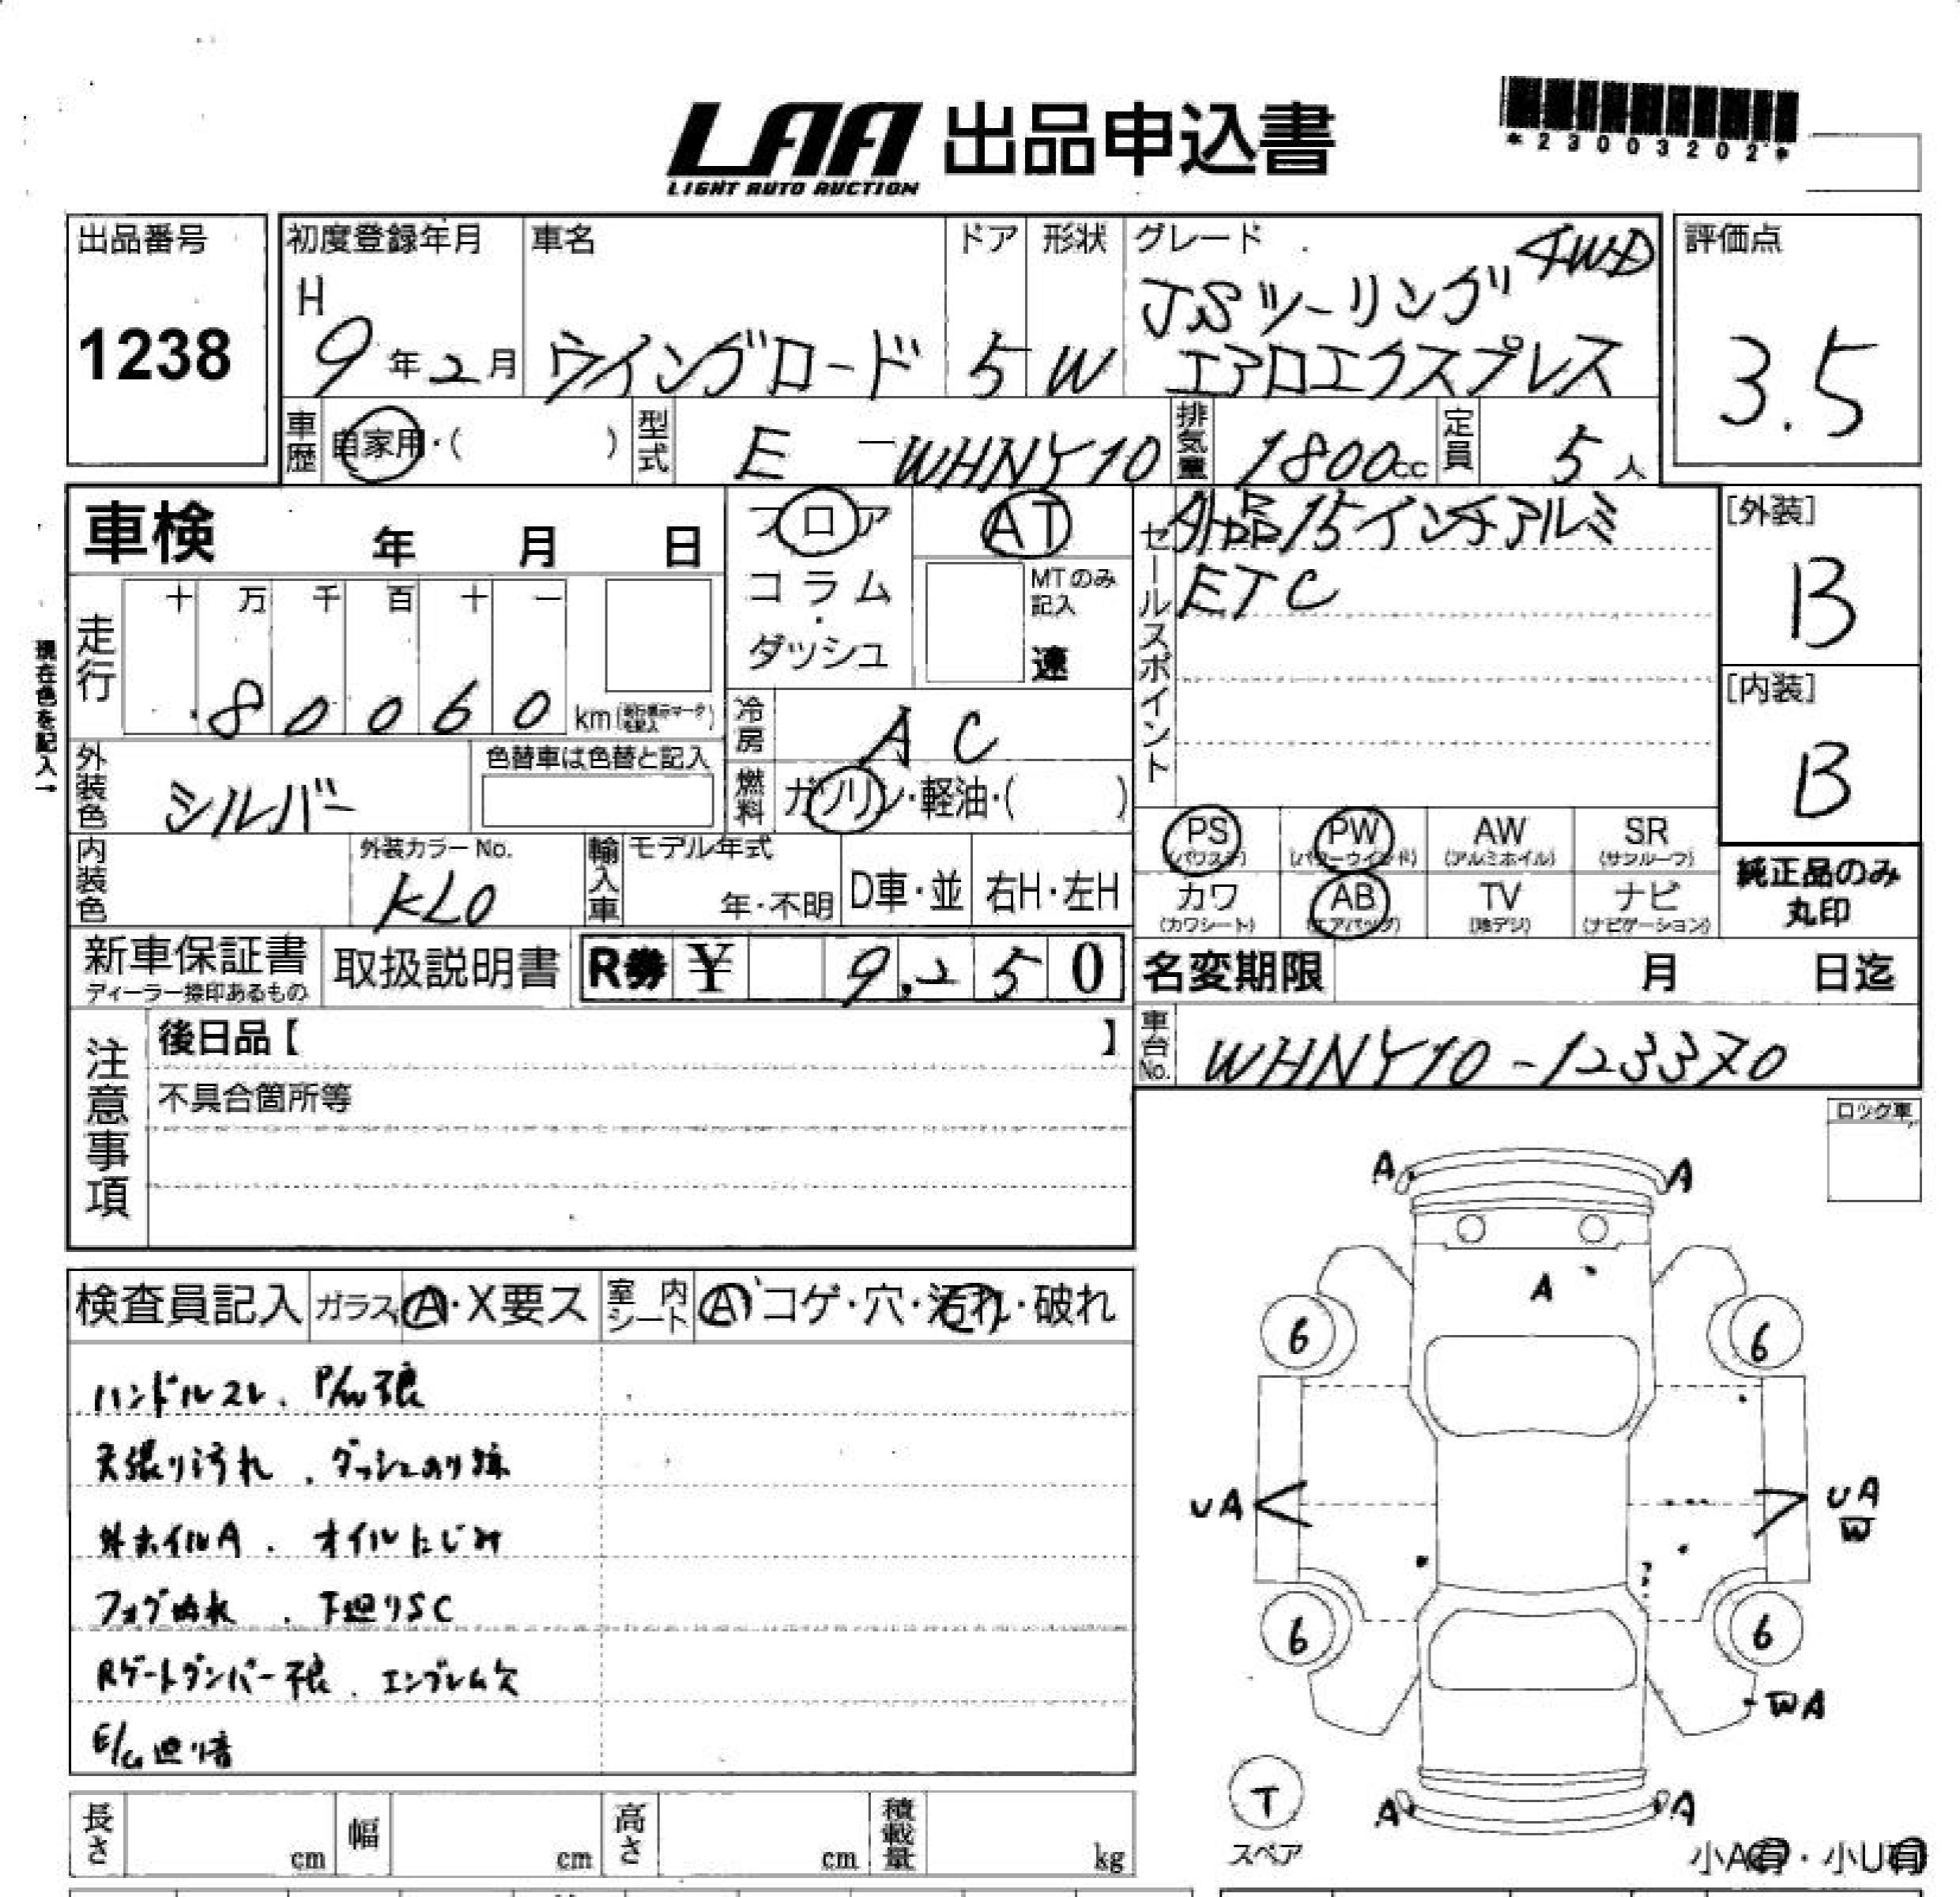 LAA 出品申込書
LIGHT AUTO AUCTION
*23003202*
出品番号
1238
初度登録年月
H
9年2月
車名
ウイングロード
ドア
5
形状
W
グレード
4WD
JSツーリング
エアロエクスプレス
評価点
3.5
車歴 自家用・( )
型式 E -WHNY10
排気量 1800cc
定員 5人
車検 年 月 日
フロア
コラム
・
ダッシュ
AT
MTのみ
記入
速
セールスポイント
外品15インチアルミ
ETC
[外装]
B
[内装]
B
現在色を記入→
走行
十 万 千 百 十 一
80060 km
冷房 AC
外装色 シルバー
色替車は色替と記入
燃料 ガソリン・軽油・( )
PS (パワステ)
PW (パワーウインド)
AW (アルミホイル)
SR (サンルーフ)
カワ (カワシート)
AB (エアバッグ)
TV (地デジ)
ナビ (ナビゲーション)
純正品のみ
丸印
内装色
外装カラーNo.
KL0
輸入車
モデル年式
年・不明
D車・並
右H・左H
新車保証書
ディーラー捺印あるもの
取扱説明書
R券 ¥ 9,250
名変期限 月 日迄
車台No. WHNY10-123370
注意事項
後日品【 】
不具合箇所等
ロック車
検査員記入 ガラス A・X要ス 室内シート A・コゲ・穴・汚れ・破れ
ハンドルスレ. P/W不良
天張り汚れ. ダッシュのり跡
外ホイルA. オイルにじみ
フォグ割れ. 下廻りSC
Rゲートダンパー不良. エンブレム欠
E/G廻り音
A A
A
6 6
UA UA
W
6 6
WA
T
スペア
A A
小A有・小U有
長さ cm
幅 cm
高さ cm
積載量 kg